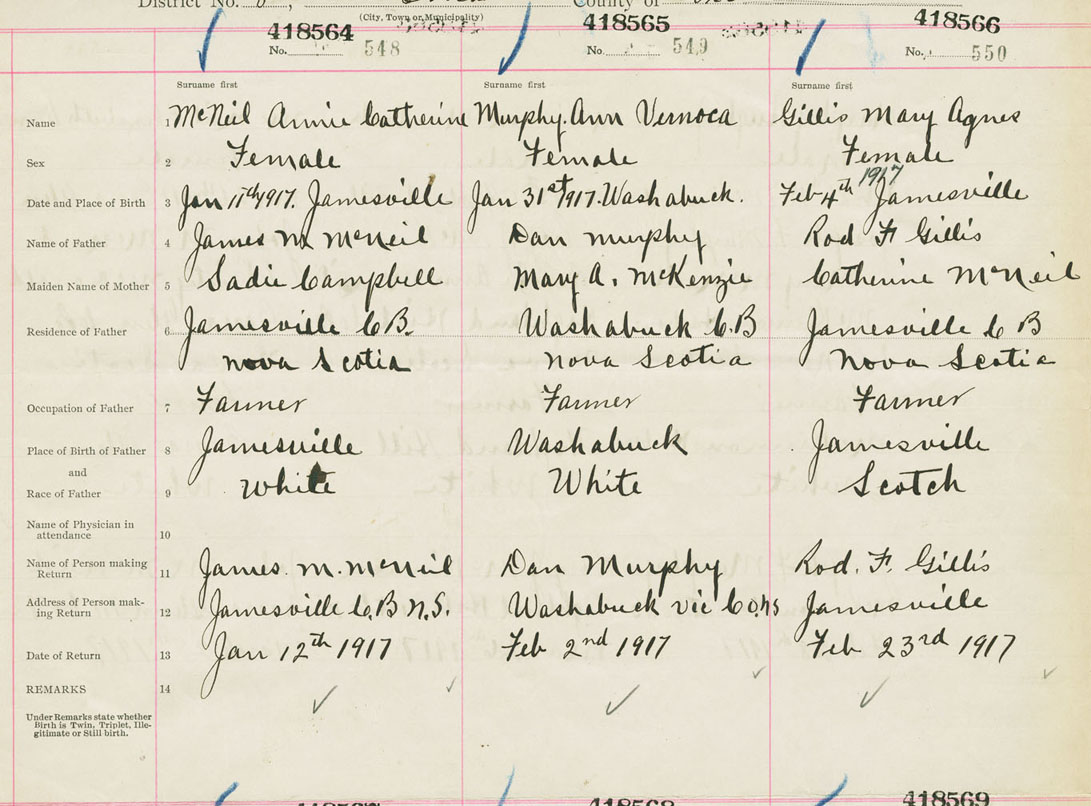 District No. County of
(City, Town or Municipality)
418564 418565 418566
No. 548 No. 549 No. 550
Surname first Surname first Surname first
Name 1 McNeil Annie Catherine Murphy. Ann Vernoca Gillis Mary Agnes
Sex 2 Female Female Female
Date and Place of Birth 3 Jan 11th 1917. Jamesville Jan 31st 1917. Washabuck. Feb 4th 1917 Jamesville
Name of Father 4 James M McNeil Dan Murphy Rod F Gillis
Maiden Name of Mother 5 Sadie Campbell Mary A. McKenzie Catherine McNeil
Residence of Father 6 Jamesville C.B. Washabuck C.B Jamesville C B
Nova Scotia Nova Scotia Nova Scotia
Occupation of Father 7 Farmer Farmer Farmer
Place of Birth of Father 8 Jamesville Washabuck Jamesville
and
Race of Father 9 White White Scotch
Name of Physician in
attendance 10
Name of Person making
Return 11 James. M. McNeil Dan Murphy Rod. F. Gillis
Address of Person mak-
ing Return 12 Jamesville C.B N.S. Washabuck vic Co. NS Jamesville
Date of Return 13 Jan 12th 1917 Feb 2nd 1917 Feb 23rd 1917
REMARKS 14
Under Remarks state whether
Birth is Twin, Triplet, Ille-
gitimate or Still birth.
418569